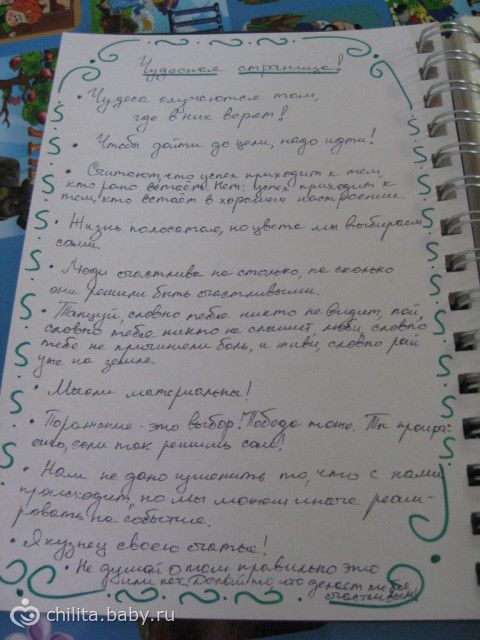 Чудесная страница!
• Чудеса случаются там,
где в них верят!
• Чтобы дойти до цели, надо идти!
• Считают, что успех приходит к тем,
кто рано встаёт. Нет: успех приходит к
тем, кто встает в хорошем настроении.
• Жизнь полосатая, но цвета мы выбираем
сами.
• Люди счастливы на столько, на сколько
они решили быть счастливыми.
• Танцуй, словно тебя никто не видит, пой,
словно тебя никто не слышит, люби, словно
тебе не причиняли боль, и живи, словно рай
уже на земле.
• Мысли материальны!
• Поражение - это выбор! Победа тоже. Ты проигра-
ешь, если так решишь сам!
• Нам не дано изменить то, что с нами
происходит, но мы можем иначе реаги-
ровать на событие.
• Я кузнец своего счастья!
• Не думай о том правильно это
или нет. Делай то, что делает тебя
счастливым
chilita.baby.ru